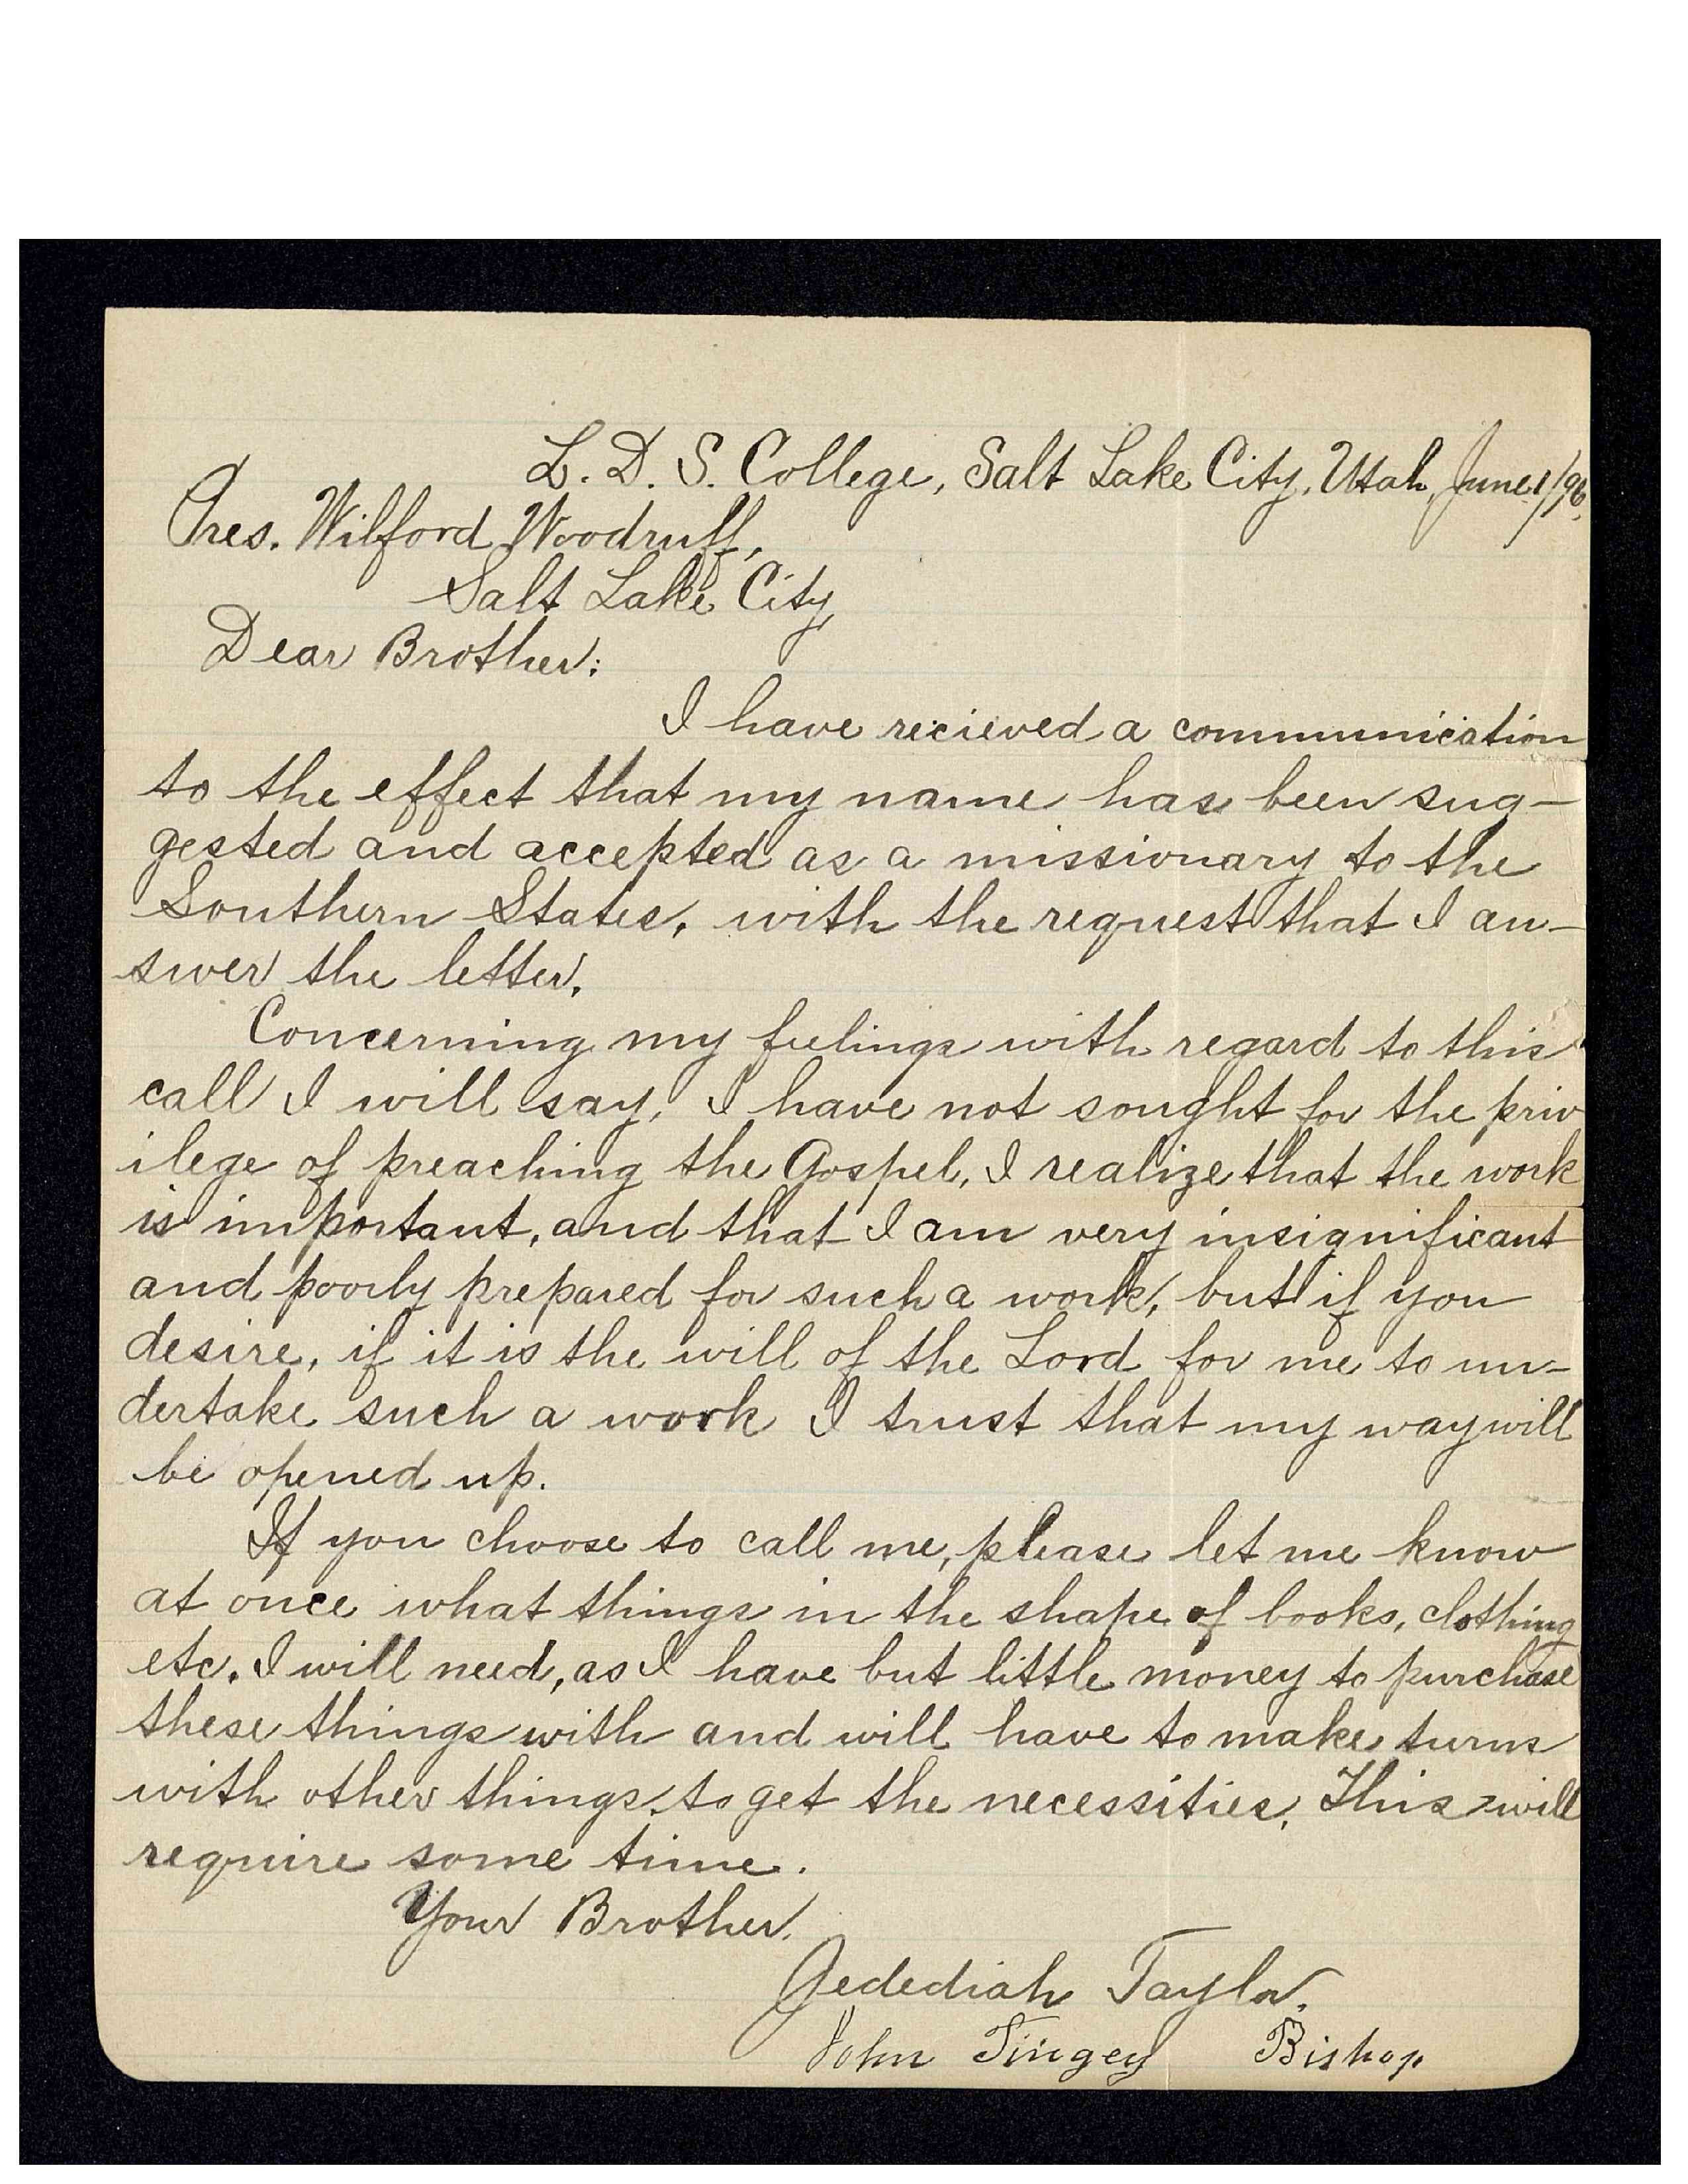 L. D. S. College, Salt Lake City, Utah, June 1/96.
Pres. Wilford Woodruff,
Salt Lake City
Dear Brother:
I have recieved a communication
to the effect that my name has been sug-
gested and accepted as a missionary to the
Southern States, with the request that I an-
swer the letter.
Concerning my feelings with regard to this
call I will say, I have not sought for the priv
ilege of preaching the Gospel, I realize that the work
is important, and that I am very insignificant
and poorly prepared for such a work, but if you
desire, if it is the will of the Lord for me to un-
dertake such a work I trust that my way will
be opened up.
If you choose to call me, please let me know
at once what things in the shape of books, clothing
etc. I will need, as I have but little money to purchase
these things with and will have to make turns
with other things to get the necessities. This will
require some time.
Your Brother.
Jedediah Taylor.
John Tingey Bishop